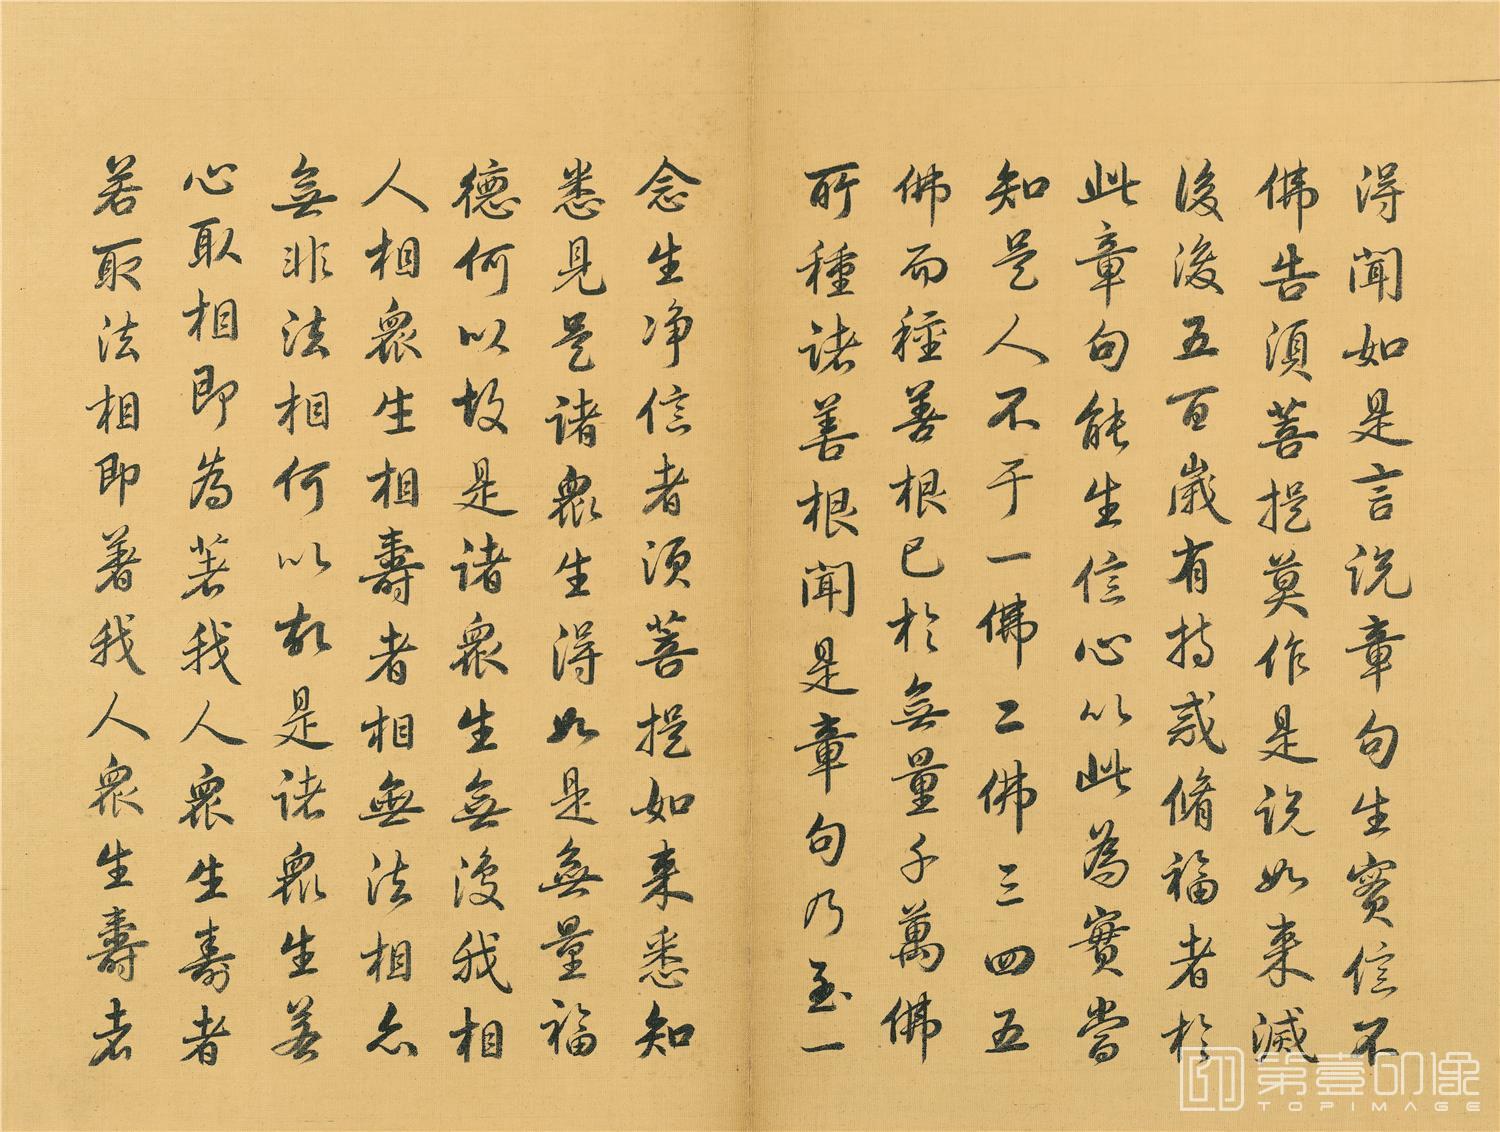 得聞如是言說章句生實信不
佛告須菩提莫作是說如来滅
後後五百歲有持戒脩福者於
此章句能生信心以此為實當
知是人不于一佛二佛三四五
佛而種善根已於無量千萬佛
所種諸善根聞是章句乃至一
念生净信者須菩提如来悉知
悉見是諸衆生得如是無量福
德何以故是諸衆生無復我相
人相衆生相壽者相無法相亦
無非法相何以故是諸衆生若
心取相即為著我人衆生壽者
若取法相即著我人衆生壽者
第壹印像
TOPIMAGE